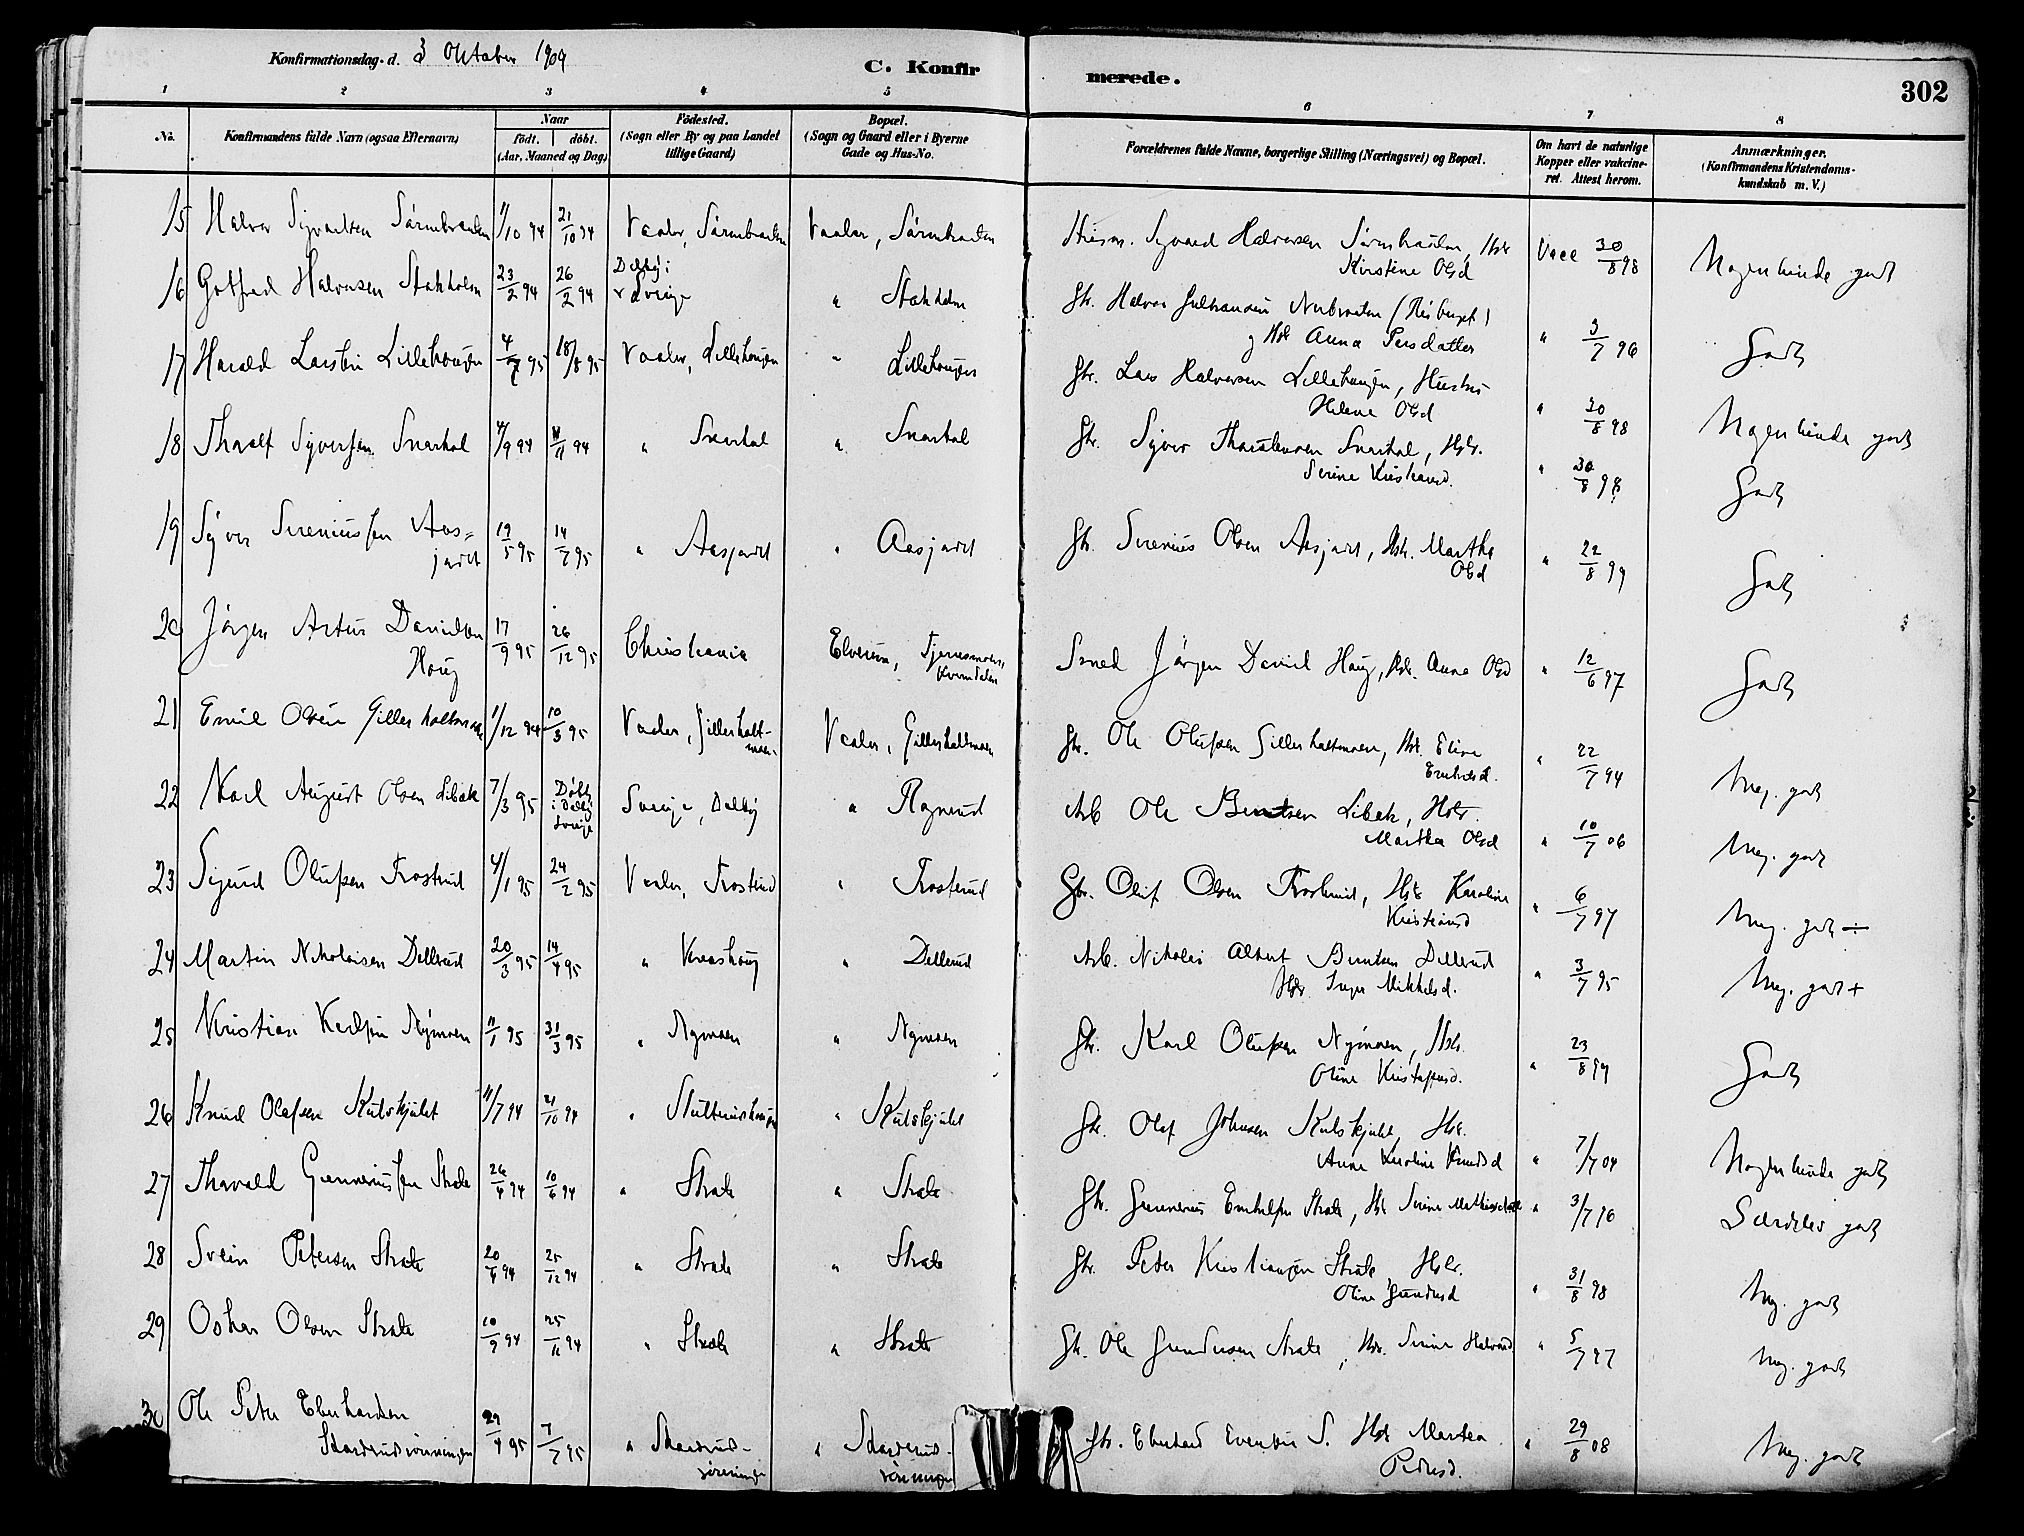 Konfirmationsdag d. 3 Oktober 1909
C. Konfirmerede.
302
1 2 3 4 5 6 7 8
No. Konfirmandens fulde Navn (ogsaa Efternavn) Naar födt. döbt. (Aar, Maaned og Dag) Födested. (Sogn eller By og paa Landet tillige Gaard) Bopæl. (Sogn og Gaard eller i Byerne Gade og Hus-No. Forældrenes fulde Navne, borgerlige Stilling (Næringsvei) og Bopæl. Om havt de naturlige Kopper eller vakcineret. Attest herom. Anmærkninger. (Konfirmandens Kristendomskundskab m. V.)
15 Halvor Syvertsen Sörumbraaten 11/10 94 21/10 94 Vaaler, Sörumbraaten Vaaler, Sörumbraaten Syvert Halvorsen Sörumbraaten, Hstr Kirstine Olsd Vacc 30/8 98 Nogenlunde godt
16 Gotfred Halvorsen Stokholm 23/2 94 26/2 94 Dalby i Sverige " Stokholm Gbr. Halvor Gulbrandsen Nerbraaten og Hstr Anna Persdatter " 3/7 96 Godt
17 Harald Larsen Lillehaugen 4/7 95 18/8 95 Vaaler, Lillehaugen " Lillehaugen Gbr. Lars Halvorsen Lillehaugen, Hustru Helene Olsd " 30/8 98 Nogenlunde godt
18 Thoralf Syversen Snartal 4/9 94 11/11 94 " Snartal " Snartal Gbr. Syver Thorstensen Snartal, Hstr. Serine Kristiansd. " 30/8 98 Godt
19 Syver Sireniussen Aasjordet 19/5 95 14/7 95 " Aasjordet " Aasjordet Gbr. Sirenius Olsen Aasjordet, Hstr. Martha Olsd " 22/8 99 Godt
20 Jörgen Artur Davidsen Houg 17/9 95 26/12 95 Christiania Elverum, Smed Jörgen David Houg, Hstr. Anna Olsd " 12/6 97 Godt
21 Emil Olsen Gillerholtmoen 1/12 94 10/3 95 Vaaler, Gillerholtmoen Vaaler, Gillerholtmoen Gbr. Ole Olufsen Gillerholtmoen, Hstr. Eline " 22/7 94 Meg. godt
22 Karl August Olsen Libæk 7/3 95 Döbt i Dalby Sverige Sverige, Dalby " Rognrud Arb Ole Berntsen Libæk, Hstr. Martha Olsd " 10/7 06 Meg. godt
23 Sigurd Olufsen Frosterud 4/1 95 24/2 95 Vaaler, Frosterud " Frosterud Gbr. Oluf Olsen Frosterud, Hstr Karoline Kristiansd " 6/7 97 Meg. godt ÷
24 Martin Nikolaisen Dellerud 20/3 95 14/4 95 " " Dellerud Arb. Nikolai Albert Berntsen Dellerud Hstr. Inger Mikkelsd. " 3/7 95 Meg. godt +
25 Kristian Karlsen Nymoen 11/1 95 31/3 95 " Nymoen " Nymoen Gbr. Karl Olufsen Nymoen, Hstr. Oline Kristofersd. " 23/8 99 Godt
26 Knud Olafsen Kulskjulet 11/7 94 21/10 94 " " Kulskjulet Gbr. Olaf Johnsen Kulskjulet, Hstr. Anne Karoline Knudsd " 7/7 04 Nogenlunde godt
27 Thorvald Gunneriussen Strate 26/4 94 10/6 94 " Strate " Strate Gbr. Gunnerius Embretsen Strate, Hstr Serine Mathiasdatter " 3/7 96 Særdeles godt
28 Svein Petersen Strate 20/9 94 25/12 94 " Strate " Strate Gbr. Peter Kristiansen Strate Hstr. Oline Gundersd " 31/8 98 Meg. godt
29 Oskar Olsen Strate 10/9 94 25/11 94 " Strate " Strate Gbr. Ole Gundersen Strate, Hstr. Serine Halvorsd " 5/7 97 Meg. godt
30 Ole Peter Eberhardsen Skarderudsröinningen 29/4 95 7/7 95 " Skarderudsröinningen " Skarderudsröinningen Gbr. Eberhard Evensen S. Hstr Martea Pedersd. " 29/8 08 Meg. godt